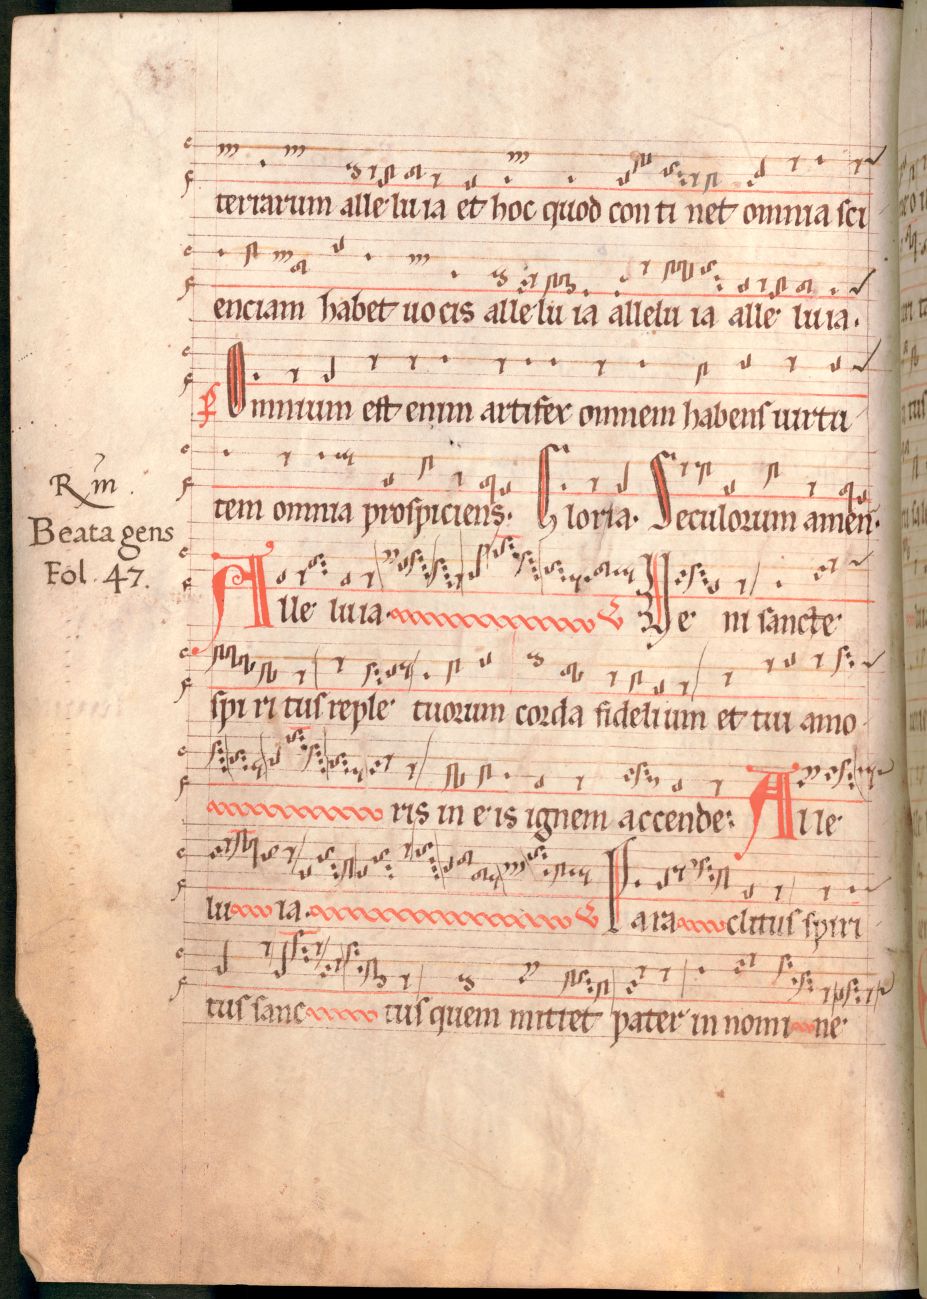 terrarum alleluia et hoc quod conti net omnia sci
enciam habet uocis alleluia allelu ia alle luia.
P Omnium est enim artifex omnem habens uirtu
tem omnia prospiciens. Gloria. Seculorum amen.
Rm
Beata gens
Fol. 47.
Alle luia Ve ni sancte
spi ri tus reple tuorum corda fidelium et tui amo
ris in e is ignem accende: Alle
lu ia. Para clitus spiri
tus sanc tus quem mittet pater in nomi ne